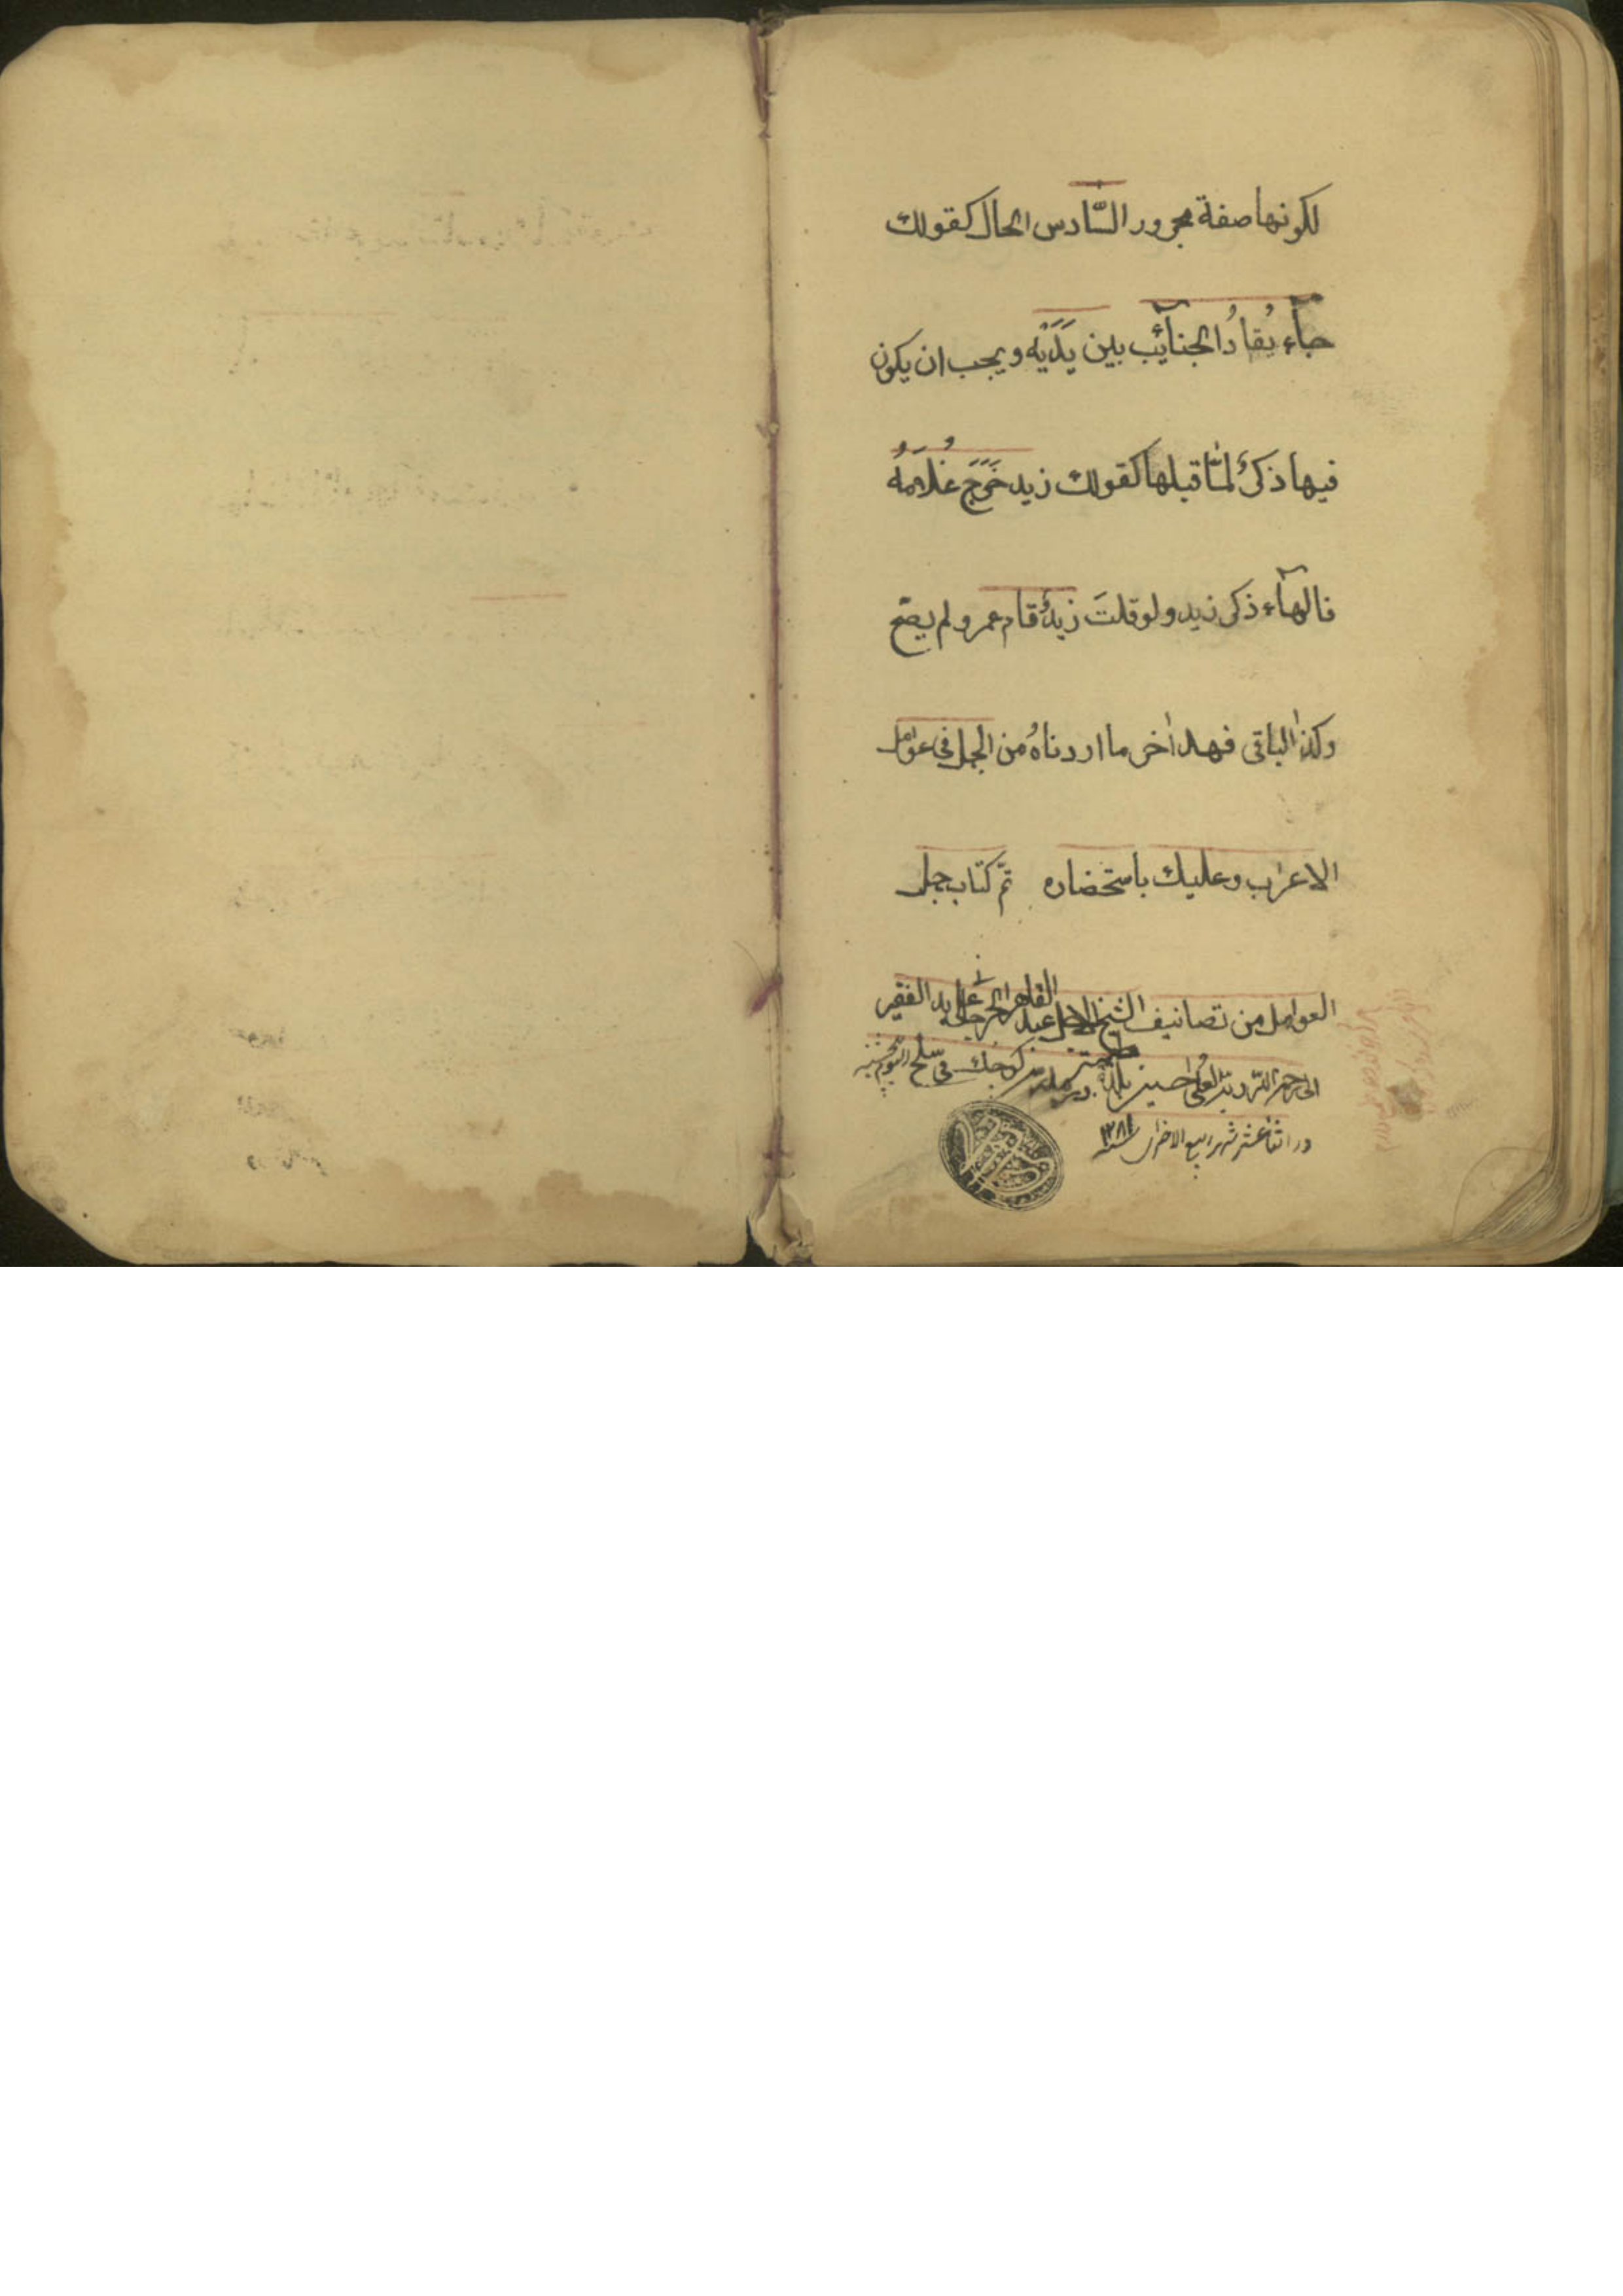 لكونها صفة مجرور السّادس الحال كقولك
جآء يُقادُ الجنآئب بين يَدَيْه ويجب ان يكون
فيها ذكرٌ لمّا قبلها كقولك زيد خَرَجَ غُلامُهُ
فالهآء ذكر زيد ولو قلتَ زيدٌ قام عمرو لم يصحّ
وكذا الباقى فهذا اٰخر ما اردناهُ من الجمل فى عوامل
الاعراب وعليك باستحضاره تمّ كتاب جمل
العوامل من تصانيف الشيخ الاجل عبد القاهر الجرجانى على يد الفقير
الى رحمة الله حسين كوچك فى سلخ اليوم
در اثنا عشر شهر ربيع الاخر سنة ١٢٨١